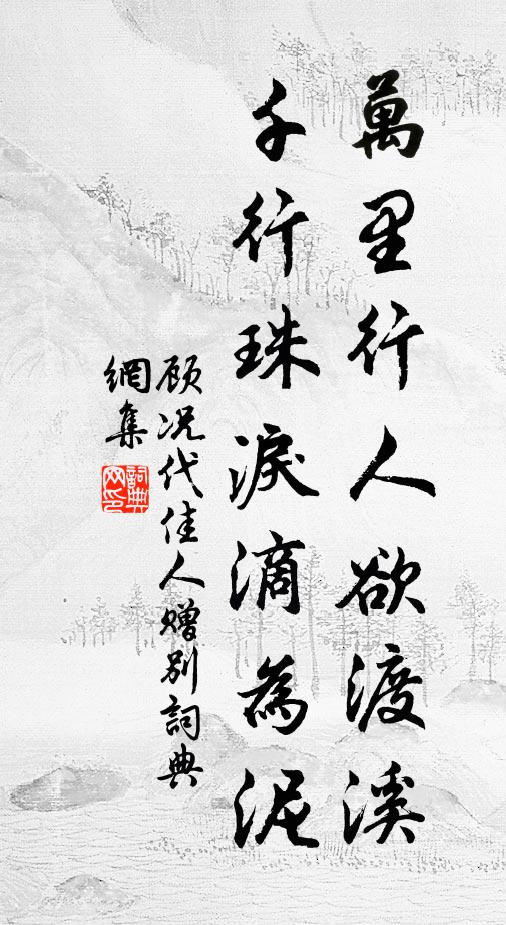 萬里行人欲渡溪
千行珠淚滴為泥
顾况代佳人赠别詞典
網集
詞典網印